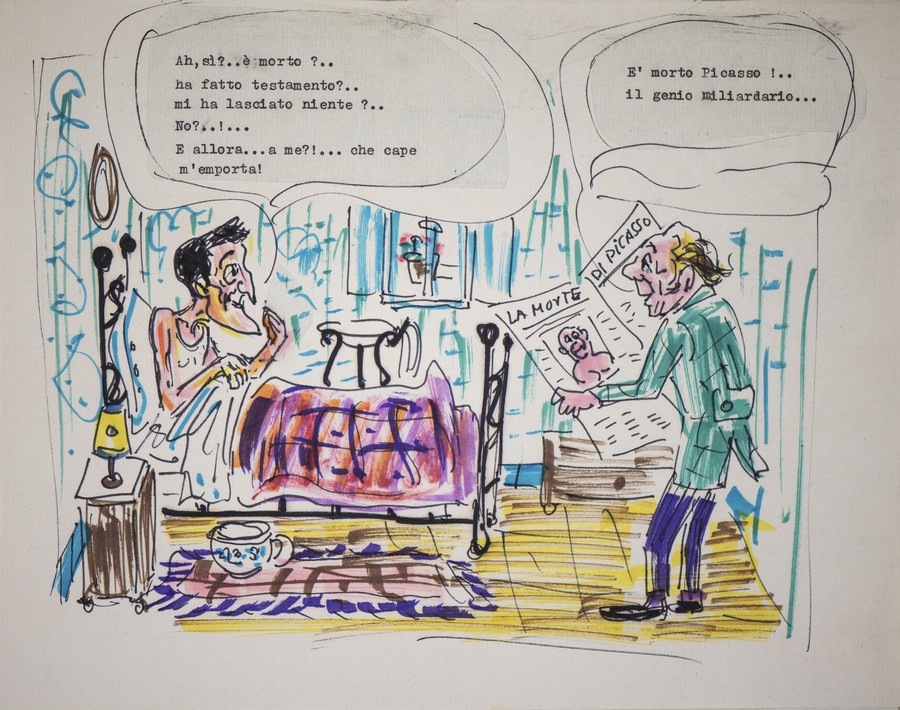 Ah,sì?..è morto ?..
ha fatto testamento?..
mi ha lasciato niente ?..
No?..!...
E allora...a me?!... che cape
m'emporta!
E' morto Picasso !..
il genio miliardario...
LA MORTE
DI PICASSO